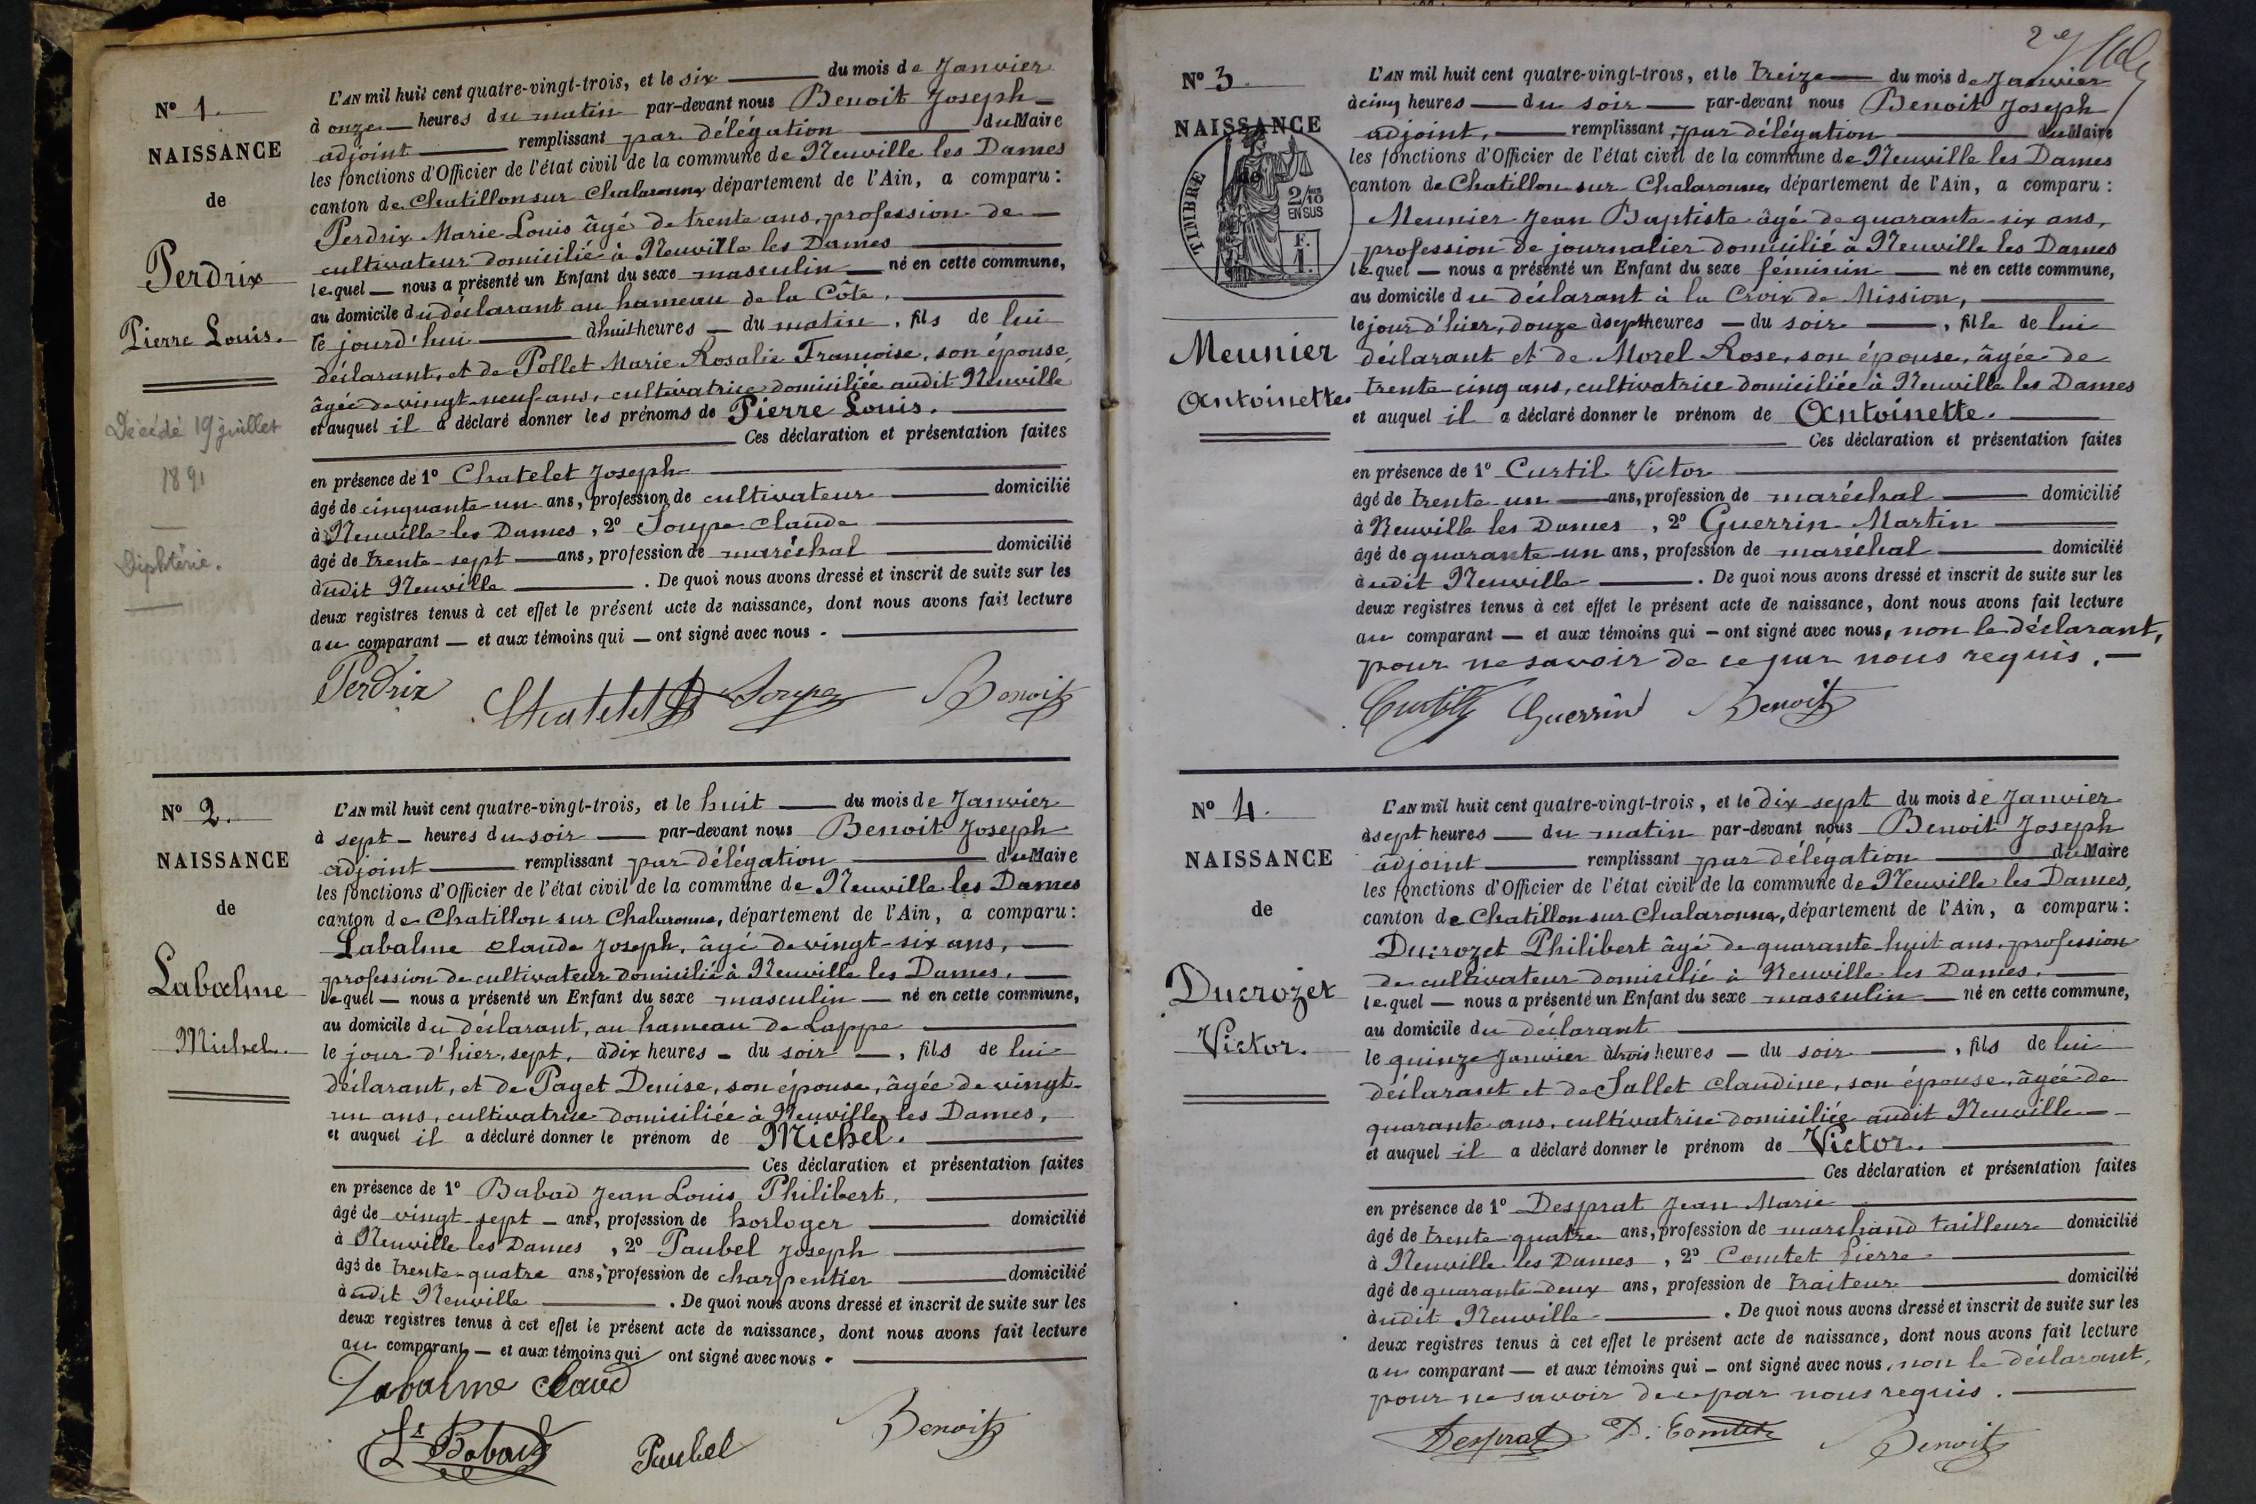 N° 1.
NAISSANCE
de
Perdrix
Pierre Louis.
Décédé 19 juillet
1891
Diphtérie.
L'AN mil huit cent quatre-vingt-trois, et le six du mois de Janvier
à onze heures du matin par-devant nous Benoit Joseph
adjoint remplissant par délégation du Maire
les fonctions d'Officier de l'état civil de la commune de Neuville les Dames
canton de Chatillon sur Chalaronne, département de l'Ain, a comparu :
Perdrix Marie Louis âgé de trente ans, profession de
cultivateur domicilié à Neuville les Dames
lequel nous a présenté un Enfant du sexe masculin né en cette commune,
au domicile du déclarant au hameau de la Côte,
le jourd'hui à huit heures du matin, fils de lui
déclarant, et de Pollet Marie Rosalie Françoise, son épouse,
âgée de vingt-neuf ans, cultivatrice domiciliée audit Neuville
et auquel il a déclaré donner les prénoms de Pierre Louis.
Ces déclaration et présentation faites
en présence de 1° Chatelet Joseph
âgé de cinquante-un ans, profession de cultivateur domicilié
à Neuville les Dames, 2° Soupe Claude
âgé de trente-sept ans, profession de maréchal domicilié
audit Neuville. De quoi nous avons dressé et inscrit de suite sur les
deux registres tenus à cet effet le présent acte de naissance, dont nous avons fait lecture
au comparant et aux témoins qui ont signé avec nous.
Perdrix Chatelet Soupe Benoit
N° 2.
NAISSANCE
de
Labalme
Michel.
L'AN mil huit cent quatre-vingt-trois, et le huit du mois de Janvier
à sept heures du soir par-devant nous Benoit Joseph
adjoint remplissant par délégation du Maire
les fonctions d'Officier de l'état civil de la commune de Neuville les Dames
canton de Chatillon sur Chalaronne, département de l'Ain, a comparu :
Labalme Claude Joseph, âgé de vingt-six ans,
profession de cultivateur domicilié à Neuville les Dames,
lequel nous a présenté un Enfant du sexe masculin né en cette commune,
au domicile du déclarant, au hameau de Lappe
le jour d'hier, sept, à dix heures du soir, fils de lui
déclarant, et de Paget Denise, son épouse, âgée de vingt-
un ans, cultivatrice domiciliée à Neuville les Dames,
et auquel il a déclaré donner le prénom de Michel.
Ces déclaration et présentation faites
en présence de 1° Babad Jean Louis Philibert,
âgé de vingt-sept ans, profession de horloger domicilié
à Neuville les Dames, 2° Paubel Joseph
âgé de trente-quatre ans, profession de charpentier domicilié
audit Neuville. De quoi nous avons dressé et inscrit de suite sur les
deux registres tenus à cet effet le présent acte de naissance, dont nous avons fait lecture
au comparant et aux témoins qui ont signé avec nous.
Labalme Claud
Ls Babad Paubel Benoit
2e
N° 3
NAISSANCE
de
TIMBRE
2/10
EN SUS
F.
1.
Meunier
Antoinette.
L'AN mil huit cent quatre-vingt-trois, et le treize du mois de Janvier
à cinq heures du soir par-devant nous Benoit Joseph
adjoint, remplissant par délégation du Maire
les fonctions d'Officier de l'état civil de la commune de Neuville les Dames
canton de Chatillon sur Chalaronne, département de l'Ain, a comparu :
Meunier Jean Baptiste âgé de quarante-six ans,
profession de journalier domicilié à Neuville les Dames
lequel nous a présenté un Enfant du sexe féminin né en cette commune,
au domicile du déclarant à la Croix de Mission,
le jour d'hier, douze à sept heures du soir, fille de lui
déclarant et de Morel Rose, son épouse, âgée de
trente-cinq ans, cultivatrice domiciliée à Neuville les Dames
et auquel il a déclaré donner le prénom de Antoinette.
Ces déclaration et présentation faites
en présence de 1° Curtil Victor
âgé de trente-un ans, profession de maréchal domicilié
à Neuville les Dames, 2° Guerrin Martin
âgé de quarante-un ans, profession de maréchal domicilié
audit Neuville. De quoi nous avons dressé et inscrit de suite sur les
deux registres tenus à cet effet le présent acte de naissance, dont nous avons fait lecture
au comparant et aux témoins qui ont signé avec nous, non le déclarant,
pour ne savoir de ce par nous requis.
Curtil Guerrin Benoit
N° 4.
NAISSANCE
de
Ducrozet
Victor.
L'AN mil huit cent quatre-vingt-trois, et le dix sept du mois de Janvier
à sept heures du matin par-devant nous Benoit Joseph
adjoint remplissant par délégation du Maire
les fonctions d'Officier de l'état civil de la commune de Neuville les Dames,
canton de Chatillon sur Chalaronne, département de l'Ain, a comparu :
Ducrozet Philibert âgé de quarante-huit ans, profession
de cultivateur domicilié à Neuville les Dames.
lequel nous a présenté un Enfant du sexe masculin né en cette commune,
au domicile du déclarant
le quinze Janvier à trois heures du soir, fils de lui
déclarant et de Sallet Claudine, son épouse, âgée de
quarante ans, cultivatrice domiciliée audit Neuville
et auquel il a déclaré donner le prénom de Victor.
Ces déclaration et présentation faites
en présence de 1° Desprat Jean Marie
âgé de trente-quatre ans, profession de marchand tailleur domicilié
à Neuville les Dames, 2° Comtet Pierre
âgé de quarante-deux ans, profession de traiteur domicilié
audit Neuville. De quoi nous avons dressé et inscrit de suite sur les
deux registres tenus à cet effet le présent acte de naissance, dont nous avons fait lecture
au comparant et aux témoins qui ont signé avec nous, non le déclarant,
pour ne savoir de ce par nous requis.
Desprat P. Comtet Benoit